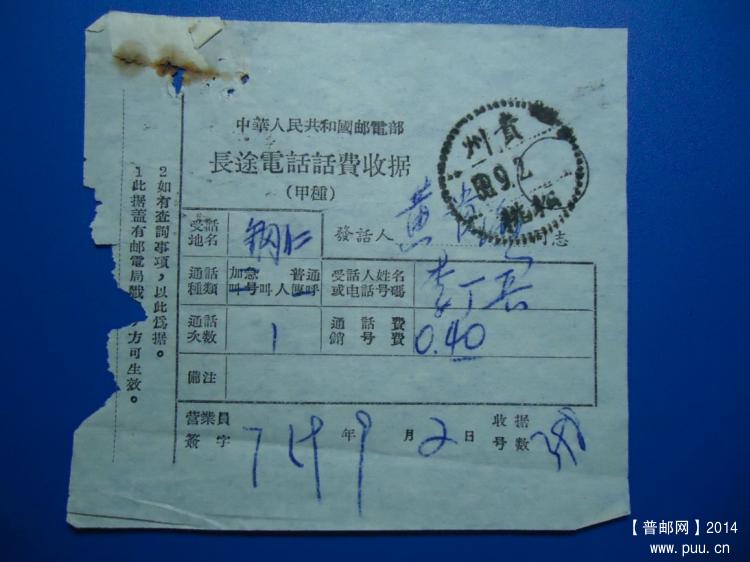 中華人民共和國邮電部
長途電話話費收据
(甲種)
貴州
9.2
松桃
受話地名 銅仁 發話人 黄 同志
通話種類 加急 普通 叫号 叫人 傳呼 受話人姓名或电話号碼 李丁
通話次数 1 通話費 銷号費 0.40
備注
营業員簽字 年 9 月 2 日 收据号数
1此据盖有邮電局戳 方可生效。
2如有查詢事項，以此爲据。
【普邮网】2014
www.puu.cn